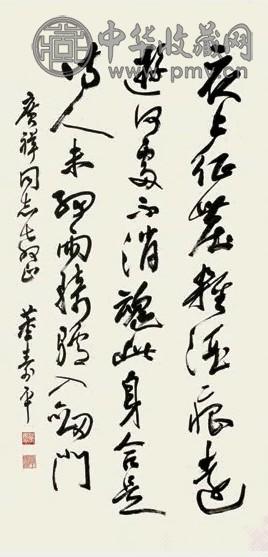 中华收藏网
衣上征塵雜酒痕遠
遊何處不消魂此身合是
詩人未細雨騎驢入劍門
廣祥同志正
董壽平